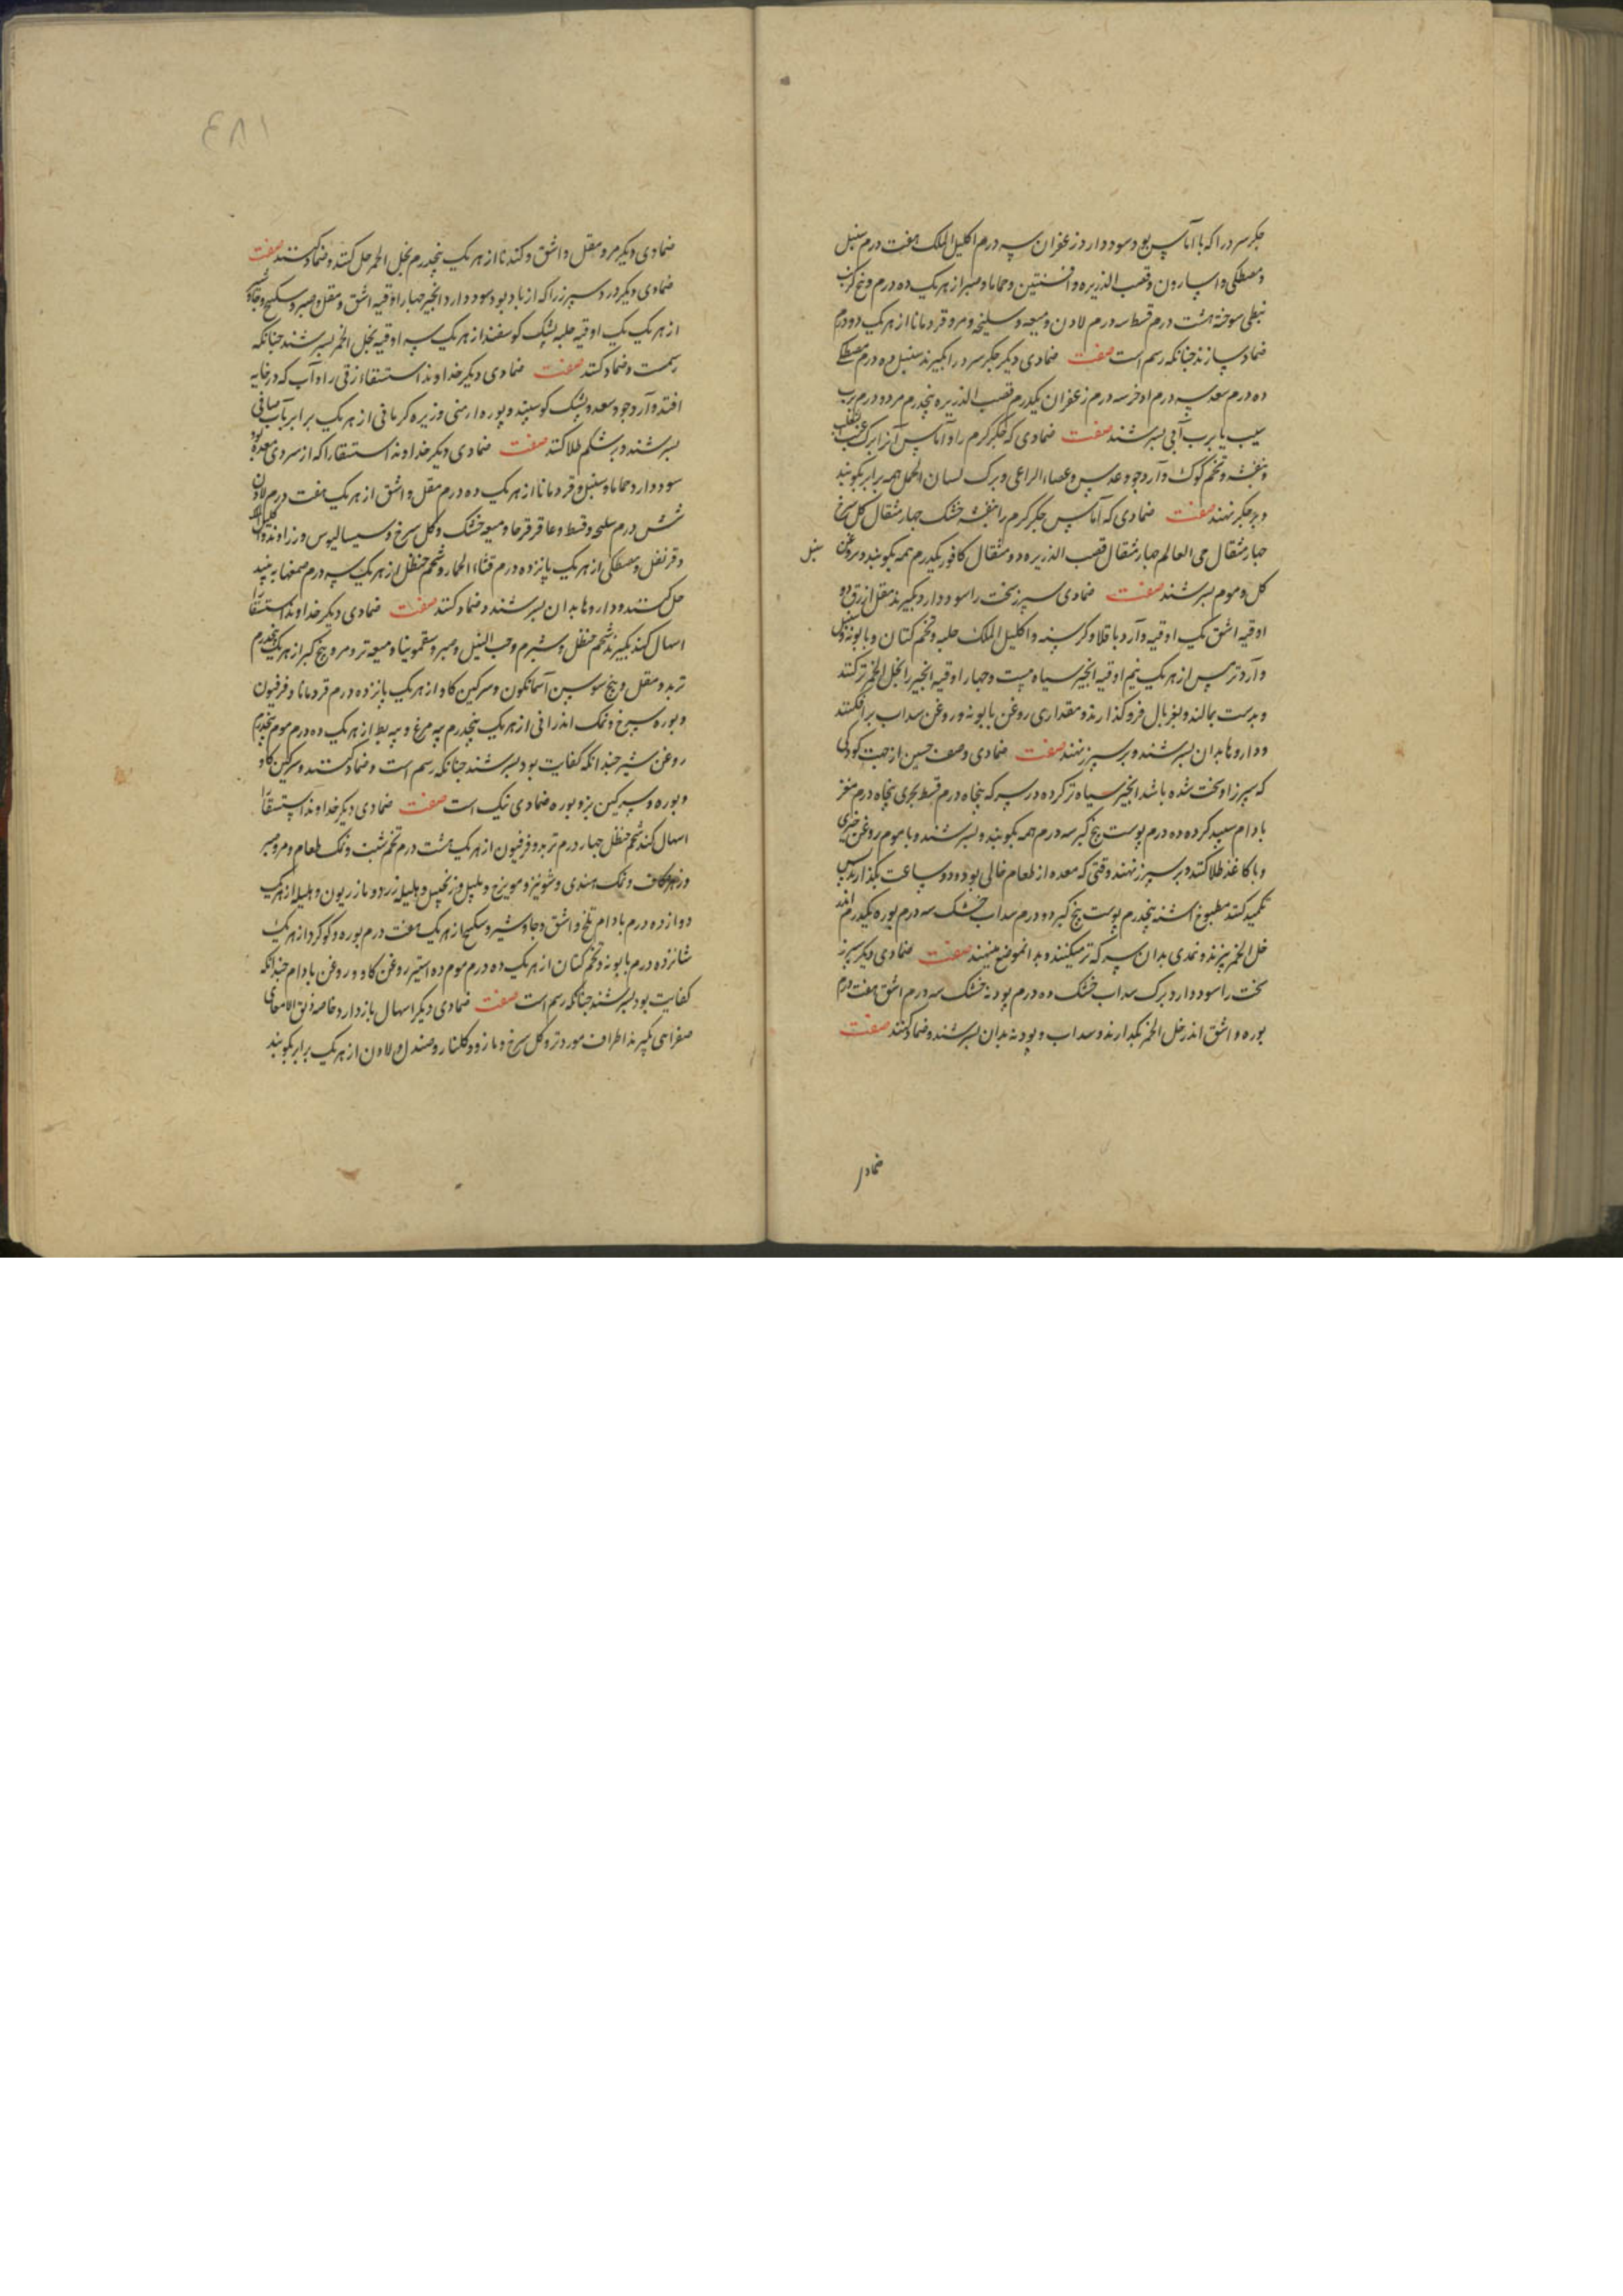 جکر سرد را که با آماس بود سود دارد زعفران سه درم اکلیل الملک هفت درم سنبل
و مصطکی و اسارون و قصب الذریره و افسنتین و حماما و صبر از هر یک ده درم و بیخ کرنب
نبطی سوخته هشت درم قسط سه درم لادن و میعه و سلیخه و مر و قردمانا از هر یک دو درم
ضماد سازند جنانکه رسم است صفت ضمادی دیکر جکر سرد را بکیرند سنبل ده درم مصطکی
ده درم سعد سه درم اذخر سه درم زعفران یکدرم قصب الذریره پنجدرم مر دو درم برب
سیب یا برب آبی بسرشند صفت ضمادی که جکر کرم را و آماس آنرا برک عنب الثعلب
و بنفشه و تخم کوک و آرد جو و عدس و عصاء الراعی و برک لسان الحمل همه برابر بکوبند
و بر جکر نهند صفت ضمادی که آماس جکر کرم را بنفشه خشک جهار مثقال کل سرخ
جهار مثقال حی العالم جهار مثقال قصب الذریره دو مثقال کافور یکدرم همه بکوبند و بروغن
سنبل
کل و موم بسرشند صفت ضمادی سپرز سخت را سود دارد بکیرند مقل ازرق دو
اوقیه اشق یک اوقیه و آرد باقلا و کرسنه و اکلیل الملک حلبه و تخم کتان و بابونه و سنبل
و آرد ترمس از هر یک نیم اوقیه انجیر سیاه بیست و جهار اوقیه انجیر را بخل الخمر تر کنند
و بدست بمالند و بغربال فرو کذارند و مقداری روغن بابونه و روغن سداب برافکنند
و داروها بدان بسرشند و بر سپرز نهند صفت ضمادی وصف حسین از جهت کودکی
که سپرز او سخت شده باشد انجیر سیاه تر کرده در سرکه پنجاه درم قسط بحری پنجاه درم مغز
بادام سپید کرده ده درم پوست بیخ کبر سه درم همه بکوبند و بسرشند و با موم روغن خیری
و با کاغذ طلا کنند و بر سپرز نهند وقتی که معده از طعام خالی بود و دو ساعت بکذارند پس
تکمید کنند مطبوخ اشنه پنجدرم پوست بیخ کبر دو درم سداب خشک سه درم بوره یکدرم اندر
خل الخمر بپزند و نمدی بدان سرکه تر میکنند و بدانموضع مینهند صفت ضمادی دیکر سپرز
سخت را سود دارد برک سداب خشک ده درم پودنه خشک سه درم اشق هفت درم
بوره و اشق اندر خل الخمر بکدازند و سداب و پودنه بدان بسرشند و ضماد کنند صفت
ضماد
۱۸۳
ضمادی دیکر مر و مقل و اشق و کندنا از هر یک پنجدرم بخل الخمر حل کنند و ضماد کنند صفت
ضمادی دیکر درد سپرز را که از باد بود سود دارد انجیر جهار اوقیه اشق و مقل و صبر و سکبینج و جاوشیر
از هر یک یک اوقیه حلبه پشک کوسفند از هر یک سه اوقیه بخل الخمر بسرشند جنانکه
رسمت و ضماد کنند صفت ضمادی دیکر خداوند استسقاء زقی را و آب که در خایه
افتد و آرد جو و سعد و پشک کوسپند و بوره ارمنی و زیره کرمانی از هر یک برابر بآب صافی
بسرشند و بر شکم طلا کنند صفت ضمادی دیکر خداوند استسقا را که از سردی معده بود
سود دارد حماما و سنبل و قردمانا از هر یک ده درم مقل و اشق از هر یک هفت درم لادن
شش درم سلیخه و قسط و عاقرقرحا و میعه خشک و کل سرخ و سیسالیوس و زراوند و اکلیل الملک
و قرنفل و مصطکی از هر یک پانزده درم قثاء الحمار و شحم حنظل از هر یک سه درم صمغها به نبید
حل کنند و داروها بدان بسرشند و ضماد کنند صفت ضمادی دیکر خداوند استسقا را
اسهال کند بکیرند شحم حنظل و شبرم و حب النیل و صبر و سقمونیا و میعه تر و مر و بیخ کبر از هر یک پنجدرم
تربد و مقل و بیخ سوسن آسمانکون و سرکین کاو از هر یک پانزده درم قردمانا و فرفیون
و بوره سرخ و نمک اندرانی از هر یک پنجدرم پیه مرغ و پیه بط از هر یک ده درم موم پنجدرم
روغن شیر جندانکه کفایت بود بسرشند جنانکه رسم است و ضماد کنند و سرکین کاو
و بوره و سرکین بز و بوره ضمادی نیک است صفت ضمادی دیکر خداوند استسقا را
اسهال کند شحم حنظل جهار درم تربد و فرفیون از هر یک هشت درم تخم شبت و نمک طعام و مر و صبر
و نمک هندی و شونیز و مویزج و پلپل و زنجبیل و هلیله زرد و مازریون و هلیله از هر یک
دوازده درم بادام تلخ و اشق و جاوشیر و سکبینج از هر یک هفت درم بوره و کوکرد از هر یک
شانزده درم بابونه و تخم کتان از هر یک ده درم موم ده استیر روغن کاو و روغن بادام جندانکه
کفایت بود بسرشند جنانکه رسم است صفت ضمادی دیکر اسهال بازدارد خاصه زلق الامعای
صفراهی بکیرند اطراف مورد تر و کل سرخ و مازو و کلنار و صندل و لادن از هر یک برابر بکوبند